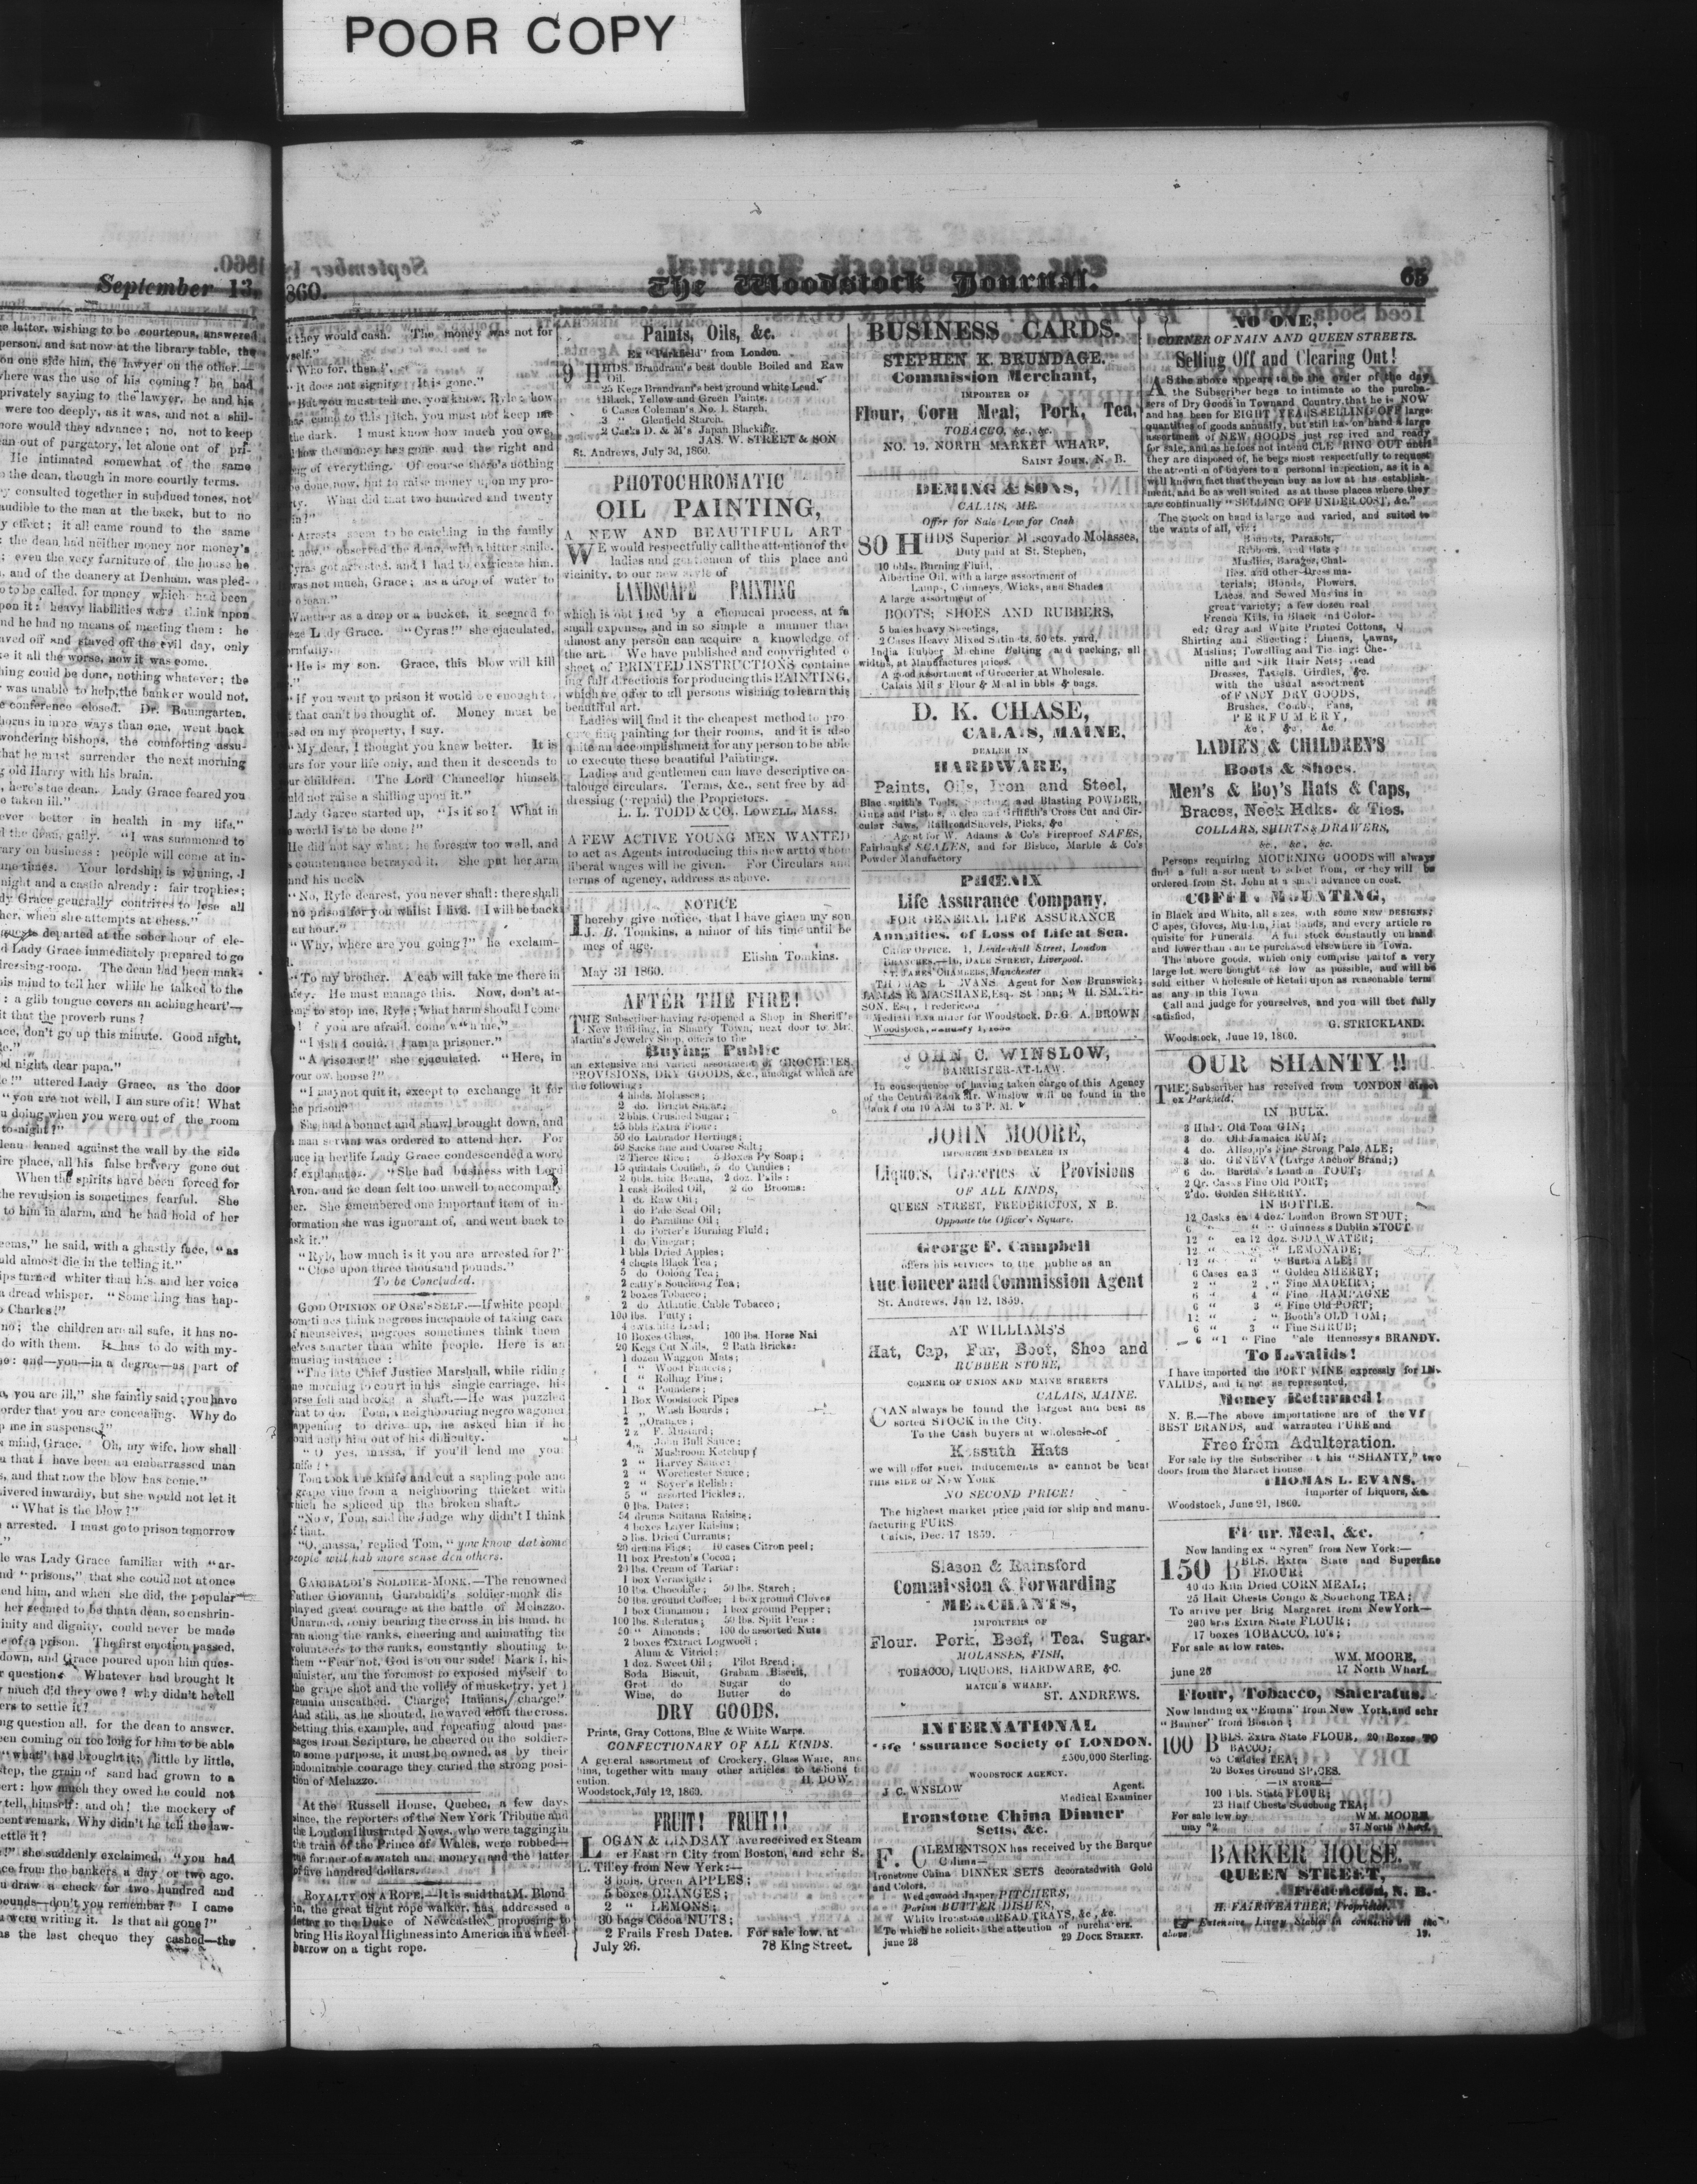 POOR COPY
September 13,
e latter, wishing to be courteous, answered
person, and sat now at the library table, the
on one side him, the lawyer on the other.—
here was the use of his coming? he had
privately saying to the lawyer, he and his
were too deeply, as it was, and not a shil-
more would they advance; no, not to keep
an out of purgatory, let alone out of pri-
He intimated somewhat of the same
the dean, though in more courtly terms.
consulted together in subdued tones, not
audible to the man at the back, but to no
y effect; it all came round to the same
the dean had neither money nor money's
; even the very furniture of the house he
and of the deanery at Denham, was pled-
o to be called, for money which had been
pon it: heavy liabilities were
nd he had no means of meeting them: he
aved off and staved off the evil day, only
e it all the worse, now it was come.
hing could be done, nothing whatever; the
was unable to help, the banker would not,
e conference closed. Dr. Baumgarten,
horns in more ways than one, went back
wondering bishops, the comforting assu-
hat he must surrender the next morning
g old Harry with his brain.
, here's the dean. Lady Grace feared you
e taken ill."
ever better in health in my life,"
d the dean, gaily. "I was summoned to
ary on business: people will come at in-
me times. Your lordship is winning, I
night and a castle already: fair trophies;
dy Grace generally contrives to lose all
her, when she attempts at chess."
departed at the sober hour of ele-
d Lady Grace immediately prepared to go
dressing-room. The dean had been mak-
his mind to tell her while he talked to the
: a glib tongue covers an aching heart'—
it that the proverb runs?
ace, don't go up this minute. Good night,
d night, dear papa."
e!" uttered Lady Grace, as the door
"you are not well, I am sure of it! What
u doing when you were out of the room
to-night?"
dean leaned against the wall by the side
ire place, all his false bravery gone out
When the spirits have been forced for
he revulsion is sometimes fearful. She
to him in alarm, and he had hold of her
ems," he said, with a ghastly face, "as
uld almost die in the telling it."
ips turned whiter than his, and her voice
a dread whisper. "Something has hap-
o Charles!"
no; the children are all safe, it has no-
do with them. It has to do with my-
e: and—you—in a degree—as part of
, you are ill," she faintly said; you have
order that you are concealing. Why do
p me in suspense?"
mind, Grace. Oh, my wife, how shall
u that I have been an embarrassed man
s, and that now the blow has come."
ivered inwardly, but she would not let it
"What is the blow?"
arrested. I must go to prison tomorrow
le was Lady Grace familiar with "ar-
nd "prisons," that she could not at once
end him, and when she did, the popular
her seemed to be that a dean, so enshrin-
inity and dignity, could never be made
e of a prison. The first emotion passed,
down, and Grace poured upon him ques-
r question. Whatever had brought it
much did they owe? why didn't he tell
ers to settle it?
ng question all, for the dean to answer.
een coming on too long for him to be able
"what" had brought it; little by little,
step, the grain of sand had grown to a
ert: how much they owed he could not
tell, himself: and oh! the mockery of
cent remark, Why didn't he tell the law-
ettle it?
!" she suddenly exclaimed, "you had
ce from the bankers a day or two ago.
u draw a check for two hundred and
pounds—don't you remember? I came
u were writing it. Is that all gone?"
as the last cheque they cashed—the
860.
The Woodstock Journal.
65
t they would cash. The money was not for
yself."
"Who for, then?"
"It does not signify. It is gone."
"But you must tell me, you know. Ryle, how
has come to this pitch, you must not keep me
the dark. I must know how much you owe,
how the money has gone and the right and
of everything. Of course there's nothing
be done, now, but to raise money upon my pro-
ty. What did that two hundred and twenty
in?"
"Arrests seem to be catching in the family
now," observed the dean, with a bitter smile.
Cyras got arrested, and I had to extricate him.
was not much, Grace; as a drop of water to
ocean."
Whether as a drop or a bucket, it seemed to
Lady Grace. "Cyras!" she ejaculated,
ornfully.
"He is my son. Grace, this blow will kill
"If you went to prison it would be enough
that can't be thought of. Money must be
sed on my property, I say.
"My dear, I thought you knew better. It is
urs for your life only, and then it descends to
our children. The Lord Chancellor himself
uld not raise a shilling upon it."
Lady Garce started up, "Is it so? What in
e world is to be done?"
He did not say what: he foresaw too well, and
countenance betrayed it. She put her arm
und his neck
"No, Ryle dearest, you never shall: there shall
no prison for you whilst I live. I will be back
an hour."
"Why, where are you going?" he exclaim-
"To my brother. A cab will take me there in
afey. He must manage this. Now, don't at-
emp to stop me, Ryle; what harm should I come
if you are afraid, come with me."
"I wish I could. I am a prisoner."
"A prisoner!" she ejaculated. "Here, in
your own house?"
"I may not quit it, except to exchange it for
he prison."
She had a bonnet and shawl brought down, and
man servant was ordered to attend her. For
nce in her life Lady Grace condescended a word
f explanation. "She had business with Lord
Avon, and he dean felt too unwell to accompany
her. She remembered one important item of in-
formation she was ignorant of, and went back to
ask it."
"Ryle, how much is it you are arrested for?"
"Close upon three thousand pounds."
To be Concluded.
GOOD OPINION OF ONE'S SELF.—If white people
sometimes think negroes incapable of taking care
of themselves, negroes sometimes think them
selves smarter than white people. Here is an
musing instance:
"The late Chief Justice Marshall, while riding
ne morning to court in his single carriage, his
horse fell and broke a shaft.—He was puzzled
hat to do. Tom, a neighbouring negro wagoner
appening to drive up, he asked him if he
ould help him out of his difficulty.
"O yes, massa, if you'll lend me your
knife!"
Tom took the knife and cut a sapling pole and
grape vine from a neighboring thicket with
which he spliced up the broken shaft.
"Now, Tom, said the Judge why didn't I think
f that.
"O, massa,' replied Tom, "yow know dat some
people will hab more sense den others.
GARIBALDI'S SOLDIER-MONK.—The renowned
Father Giovanni, Garibaldi's soldier-monk dis
played great courage at the battle of Melazzo.
Unarmed, only bearing the cross in his hand, he
ran along the ranks, cheering and animating the
volunteers to the ranks, constantly shouting to
them "Fear not, God is on our side! Mark I, his
minister, am the foremost to exposed myself to
the grape shot and the volley of musketry, yet I
remain unscathed. Charge! Italians, charge!"
And still, as he shouted, he waved aloft the cross.
Setting this example, and repeating aloud pas-
sages from Scripture, he cheered on the soldiers
to some purpose, it must be owned, as by their
indomitable courage they caried the strong posi-
tion of Melazzo.
At the Russell House, Quebec, a few days
since, the reporters of the New York Tribune and
the London Illustrated News, who were tagging in
the train of the Prince of Wales, were robbed—
the former of a watch an money, and the latter
of five hundred dollars.
ROYALTY ON A ROPE.—It is said that M. Blond
in, the great tight rope walker, has addressed a
letter to the Duke of Newcastle, proposing to
bring His Royal Highness into America in a wheel-
barrow on a tight rope.
Paints, Oils, &c.
Ex "Parkfield" from London.
9 HHDS. Brandram's best double Boiled and Raw
Oil.
25 Kegs Brandram's best ground white Lead.
Black, Yellow and Green Paints.
6 Cases Coleman's No. 1. Starch,
3 " Glenfield Starch.
2 Casks D. & M's Japan Blacking.
JAS. W. STREET & SON
St. Andrews, July 3d, 1860.
PHOTOCHROMATIC
OIL PAINTING,
A NEW AND BEAUTIFUL ART
WE would respectfully call the attention of the
ladies and gentlemen of this place and
vicinity, to our new style of
LANDSCAPE PAINTING
which is obt ined by a chemical process, at
small expense, and in so simple a manner that
almost any person can acquire a knowledge of
the art. We have published and copyrighted
sheet of PRINTED INSTRUCTIONS containe
ing full directions for producing this PAINTING,
which we offer to all persons wishing to learn this
beautiful art.
Ladies will find it the cheapest method to pro
cure fine painting for their rooms, and it is also
quite an accomplishment for any person to be able
to execute these beautiful Paintings.
Ladies and gentlemen can have descriptive ca-
talouge circulars. Terms, &c., sent free by ad
dressing (repaid) the Proprietors.
L. L. TODD & CO., LOWELL, MASS.
A FEW ACTIVE YOUNG MEN WANTED
to act as Agents introducing this new art to whom
liberal wages will be given. For Circulars and
terms of agency, address as above.
NOTICE
I hereby give notice, that I have given my son
J. B. Tomkins, a minor of his time until he
mes of age.
Elisha Tomkins.
May 31 1860.
AFTER THE FIRE!
THE Subscriber having re-opened a Shop in Sheriff's
New Building, in Shanty Town, next door to Mr.
Martin's Jewelry Shop, offers to the
Buying Public
an extensive and varied assortment of GROCERIES,
PROVISIONS, DRY GOODS, &c., amongst which are
the following:
4 hhds. Molasses;
2 do. Bright Sugar;
2 bbls. Crushed Sugar;
25 bbls Extra Flour;
50 do Labrador Herrings;
50 Sacks fine and Coarse Salt;
2 Tierce Rice; 5 Boxes Py Soap;
15 quintals Codfish, 5 do Candles;
2 bbls. hite Beans, 2 doz. Pails:
1 cask Boiled Oil, 2 do Brooms:
1 do Raw Oil;
1 do Pale Seal Oil;
1 do Paraffine Oil;
1 do Porter's Burning Fluid;
1 do Vinegar;
1 bbls Dried Apples;
4 chests Black Tea;
5 do Oolong Tea;
2 catty's Souchong Tea;
2 boxes Tobacco;
2 do Atlantic Cable Tobacco;
100 lbs. Putty;
10 Boxes Glass, 100 lbs. Horse Nai
20 Kegs Cut Nails, 2 Bath Bricks:
1 dozen Waggon Mats;
1 " Wood Faucets;
1 " Rolling Pins;
1 " Pounders;
1 Box Woodstock Pipes
1 " Wash Boards;
2 " Oranges;
2 F. Mustard;
4 " John Bull Sauce;
" Mushroom Ketchup
2 " Harvey Sauce;
2 " Worchester Sauce;
2 " Soyer's Relish:
5 " assorted Pickles;
0 lbs. Dates;
54 drums Sultana Raisins;
4 boxes Layer Raisins;
5 lbs. Dried Currants;
20 drums Figs; 10 cases Citron peel;
11 box Preston's Cocoa;
20 lbs. Cream of Tartar:
1 box Vermicelle;
10 lbs. Chocolate; 50 lbs. Starch;
50 lbs. ground Coffee; 1 box ground Cloves
1 box Cinnamon; 1 box ground Pepper;
100 lbs. Sleratus; 50 lbs. Split Peas:
50 " Almonds; 100 do assorted Nuts
2 boxes Extract Logwood;
Alum & Vitriol;
1 doz. Sweet Oil; Pilot Bread;
Soda Biscuit, Graham Biscuit,
Grot do Sugar do
Wine, do Butter do
DRY GOODS.
Prints, Gray Cottons, Blue & White Warps.
CONFECTIONARY OF ALL KINDS.
A general assortment of Crockery, Glass Ware, and
hina, together with many other articles to tedious
ention. H. DOW.
Woodstock, July 12, 1860.
FRUIT! FRUIT!!
LOGAN & LINDSAY have received ex Steam
er Eastern City from Boston, and schr S.
L. Tilley from New York:—
3 bbls. Green APPLES;
5 boxes ORANGES;
2 " LEMONS;
30 bags Cocoa NUTS;
2 Frails Fresh Dates. For sale low, at
July 26. 78 King Street.
BUSINESS CARDS.
STEPHEN K. BRUNDAGE,
Commission Merchant,
IMPORTER OF
Flour, Corn Meal, Pork, Tea,
TOBACCO, &c., &c.
NO. 19. NORTH MARKET WHARF,
SAINT JOHN, N. B.
DEMING & SONS,
CALAIS, ME.
Offer for Sale Low for Cash
80 HHDS Superior Muscovado Molasses,
Duty paid at St. Stephen,
10 bbls. Burning Fluid,
Albertine Oil, with a large assortment of
Lamps, Chimneys, Wicks, and Shades
A large assortment of
BOOTS; SHOES AND RUBBERS,
5 bales heavy Sheetings,
2 Cases Heavy Mixed Satinets, 50 cts. yard,
India Rubber Machine Belting and packing, all
widths, at Manufactures prices.
A good assortment of Grocerier at Wholesale.
Calais Mills Flour & Meal in bbls & bags.
D. K. CHASE,
CALAIS, MAINE,
DEALER IN
HARDWARE,
Paints, Oils, Iron and Steel,
Blacksmith's Tools, Sporting and Blasting POWDER,
Guns and Pistols, Welch and Griffith's Cross Cut and Cir-
cular Saws, Railroad Shovels, Picks, &c
Agent for W. Adams & Co's Fireproof SAFES,
Fairbanks' SCALES, and for Bisbco, Marble & Co's
Powder Manufactory
PHŒNIX
Life Assurance Company.
FOR GENERAL LIFE ASSURANCE
Annuities, of Loss of Life at Sea.
CHIEF OFFICE. 1, Leadenhall Street, London
BRANCHES,—16, DALE STREET, Liverpool.
ST. JAMES' CHAMBERS, Manchester
THOMAS L EVANS, Agent for New Brunswick;
JAMES R. MACSHANE, Esq. St John; W H. SMITH-
SON, Esq, Fredericton
Medical Examiner for Woodstock, Dr. G. A. BROWN
Woodstock, January 1,
JOHN C. WINSLOW,
BARRISTER-AT-LAW.
In consequence of having taken carge of this Agency
of the Central Bank Mr. Winslow will be found in the
Bank from 10 A.M to 3 P. M.
JOHN MOORE,
IMPORTER AND DEALER IN
Liquors, Groceries & Provisions
OF ALL KINDS,
QUEEN STREET, FREDERICTON, N B.
Opposite the Officer's Square.
George F. Campbell
offers his services to the public as an
Auctioneer and Commission Agent
St. Andrews, Jan 12, 1859.
AT WILLIAMS'S
Hat, Cap, Fur, Boot, Shoe and
RUBBER STORE,
CORNER OF UNION AND MAINE STREETS
CALAIS, MAINE.
CAN always be found the largest and best as
sorted STOCK in the City.
To the Cash buyers at wholesale of
Kossuth Hats
we will offer such inducements as cannot be beat
THIS SIDE OF NEW YORK
NO SECOND PRICE!
The highest market price paid for ship and manu-
facturing FURS.
Calais, Dec. 17 1859.
Slason & Rainsford
Commission & Forwarding
MERCHANTS,
IMPORTERS OF
Flour, Pork, Beef, Tea, Sugar.
MOLASSES, FISH,
TOBACCO, LIQUORS, HARDWARE, &C.
HATCH'S WHARF.
ST. ANDREWS.
INTERNATIONAL
Life Assurance Society of LONDON.
£500,000 Sterling.
WOODSTOCK AGENCY.
J C. WNSLOW Agent.
Medical Examiner
Ironstone China Dinner
Setts, &c.
F. CLEMENTSON has received by the Barque
Ironstone China DINNER SETS decorated with Gold
and Colors,
Wedgewood Jasper PITCHERS,
Parian BUTTER DISHES,
White Ironstone BREAD TRAYS, &c, &c.
To which he solicits the attention of purchasers.
june 28 29 DOCK STREET.
NO ONE,
CORNER OF NAIN AND QUEEN STREETS.
Selling Off and Clearing Out!
AS the above appears to be the order of the day
the Subscriber begs to intimate so the purcha-
sers of Dry Goods in Town and Country, that he is NOW
and has been for EIGHT YEARS SELLING OFF large
quantities of goods annually, but still has on hand a large
assortment of NEW GOODS just received and ready
for sale, and as he loes not intend CLEARING OUT until
they are disposed of, he begs most respectfully to request
the attention of buyers to a personal inspection, as it is a
well known fact that they can buy as low at his establish-
ment, and be as well suited as at those places where they
are continually "SELLING OFF UNDER COST, &c."
The Stock on hand is large and varied, and suited to
the wants of all, viz:
Bonnets, Parasols,
Ribbons, and Hats;
Muslins, Barages, Chal-
lies, and other Dress ma-
terials; Blonds, Flowers,
Laces, and Sewed Muslins in
great variety; a few dozen real
French Kids, in Black and Color-
ed; Grey and White Printed Cottons,
Shirting and Sheeting; Linens, Lawns,
Muslins; Towelling and Ticking; Che-
nille and Silk Hair Nets; Head
Dresses, Tassels, Girdles, &c.
with the usual assortment
of FANCY DRY GOODS,
Brushes, Combs, Fans,
PERFUMERY,
&c, &c, &c.
LADIE'S & CHILDREN'S
Boots & Shoes.
Men's & Boy's Hats & Caps,
Braces, Neck Hdks. & Ties.
COLLARS, SHIRTS & DRAWERS,
&c, &c, &c.
Persons requiring MOURNING GOODS will always
find a full assortment to select from, or they will be
ordered from St. John at a small advance on cost.
COFFIN MOUNTING,
in Black and White, all sizes, with some NEW DESIGNS;
Capes, Gloves, Muslin, Hat Bands, and every article re
quisite for Funerals. A full stock constantly on hand
and lower than can be purchased elsewhere in Town.
The above goods, which only comprise part of a very
large lot, were bought as low as possible, and will be
sold either Wholesale or Retail upon as reasonable term
as any in this Town
Call and judge for yourselves, and you will thet fully
satisfied,
G. STRICKLAND.
Woodstock, June 19, 1860.
OUR SHANTY!!
THE Subscriber has received from LONDON direct
ex Parkfield.
IN BULK.
3 Hhds. Old Tom GIN;
3 do. Old Jamaica RUM;
4 do. Allsopp's Fine Strong Pale ALE;
3 do. GENEVA (Large Anchor Brand;)
6 do. Barclay's London TOUT;
2 Qr. Casks Fine Old PORT;
2 do. Golden SHERRY.
IN BOTTLE.
12 Casks ea 4 doz. London Brown STOUT;
6 " " Guinness's Dublin STOUT
12 " ea 12 doz. SODA WATER;
12 " " LEMONADE;
12 " " Burton ALE;
6 Cases ea 3 " Golden SHERRY;
2 " 2 " Fine MADEIRA;
6 " 4 " Fine HAMPAGNE
6 " 3 " Fine Old PORT;
12 " " Booth's OLD TOM;
6 " 3 " Fine SHRUB;
6 " 1 " Fine Pale Hennessys BRANDY.
To Invalids!
I have imported the PORT WINE expressly for IN-
VALIDS, and is not as represented,
Money Returned!
N. B.—The above importatione are of the
BEST BRANDS, and warranted PURE and
Free from Adulteration.
For sale by the Subscriber at his "SHANTY," two
doors from the Market House
THOMAS L. EVANS,
Importer of Liquors, &c.
Woodstock, June 21, 1860.
Flour, Meal, &c.
Now landing ex "Syren" from New York:—
150 BBLS. Extra State and Superfine
FLOUR;
40 do Kiln Dried CORN MEAL;
25 Half Chests Congo & Souchong TEA;
To arrive per Brig Margaret from New York—
200 brls Extra State FLOUR;
17 boxes TOBACCO, 10's;
For sale at low rates.
WM. MOORE,
june 28 17 North Wharf.
Flour, Tobacco, Saleratus.
Now landing ex "Emma" from New York, and schr
"Banner" from Boston;
100 BBLS. Extra State FLOUR, 20 Boxes TO
BACCO;
65 Caddies TEA;
20 Boxes Ground SPICES.
—IN STORE—
100 bbls. State FLOUR;
23 Half Chests Souchong TEA;
For sale low by WM. MOORE
may 22 37 North Wharf.
BARKER HOUSE.
QUEEN STREET,
Fredericton, N. B.
H. FAIRWEATHER, Proprietor.
Extensive Livery Stables in connection with the
above. 19.